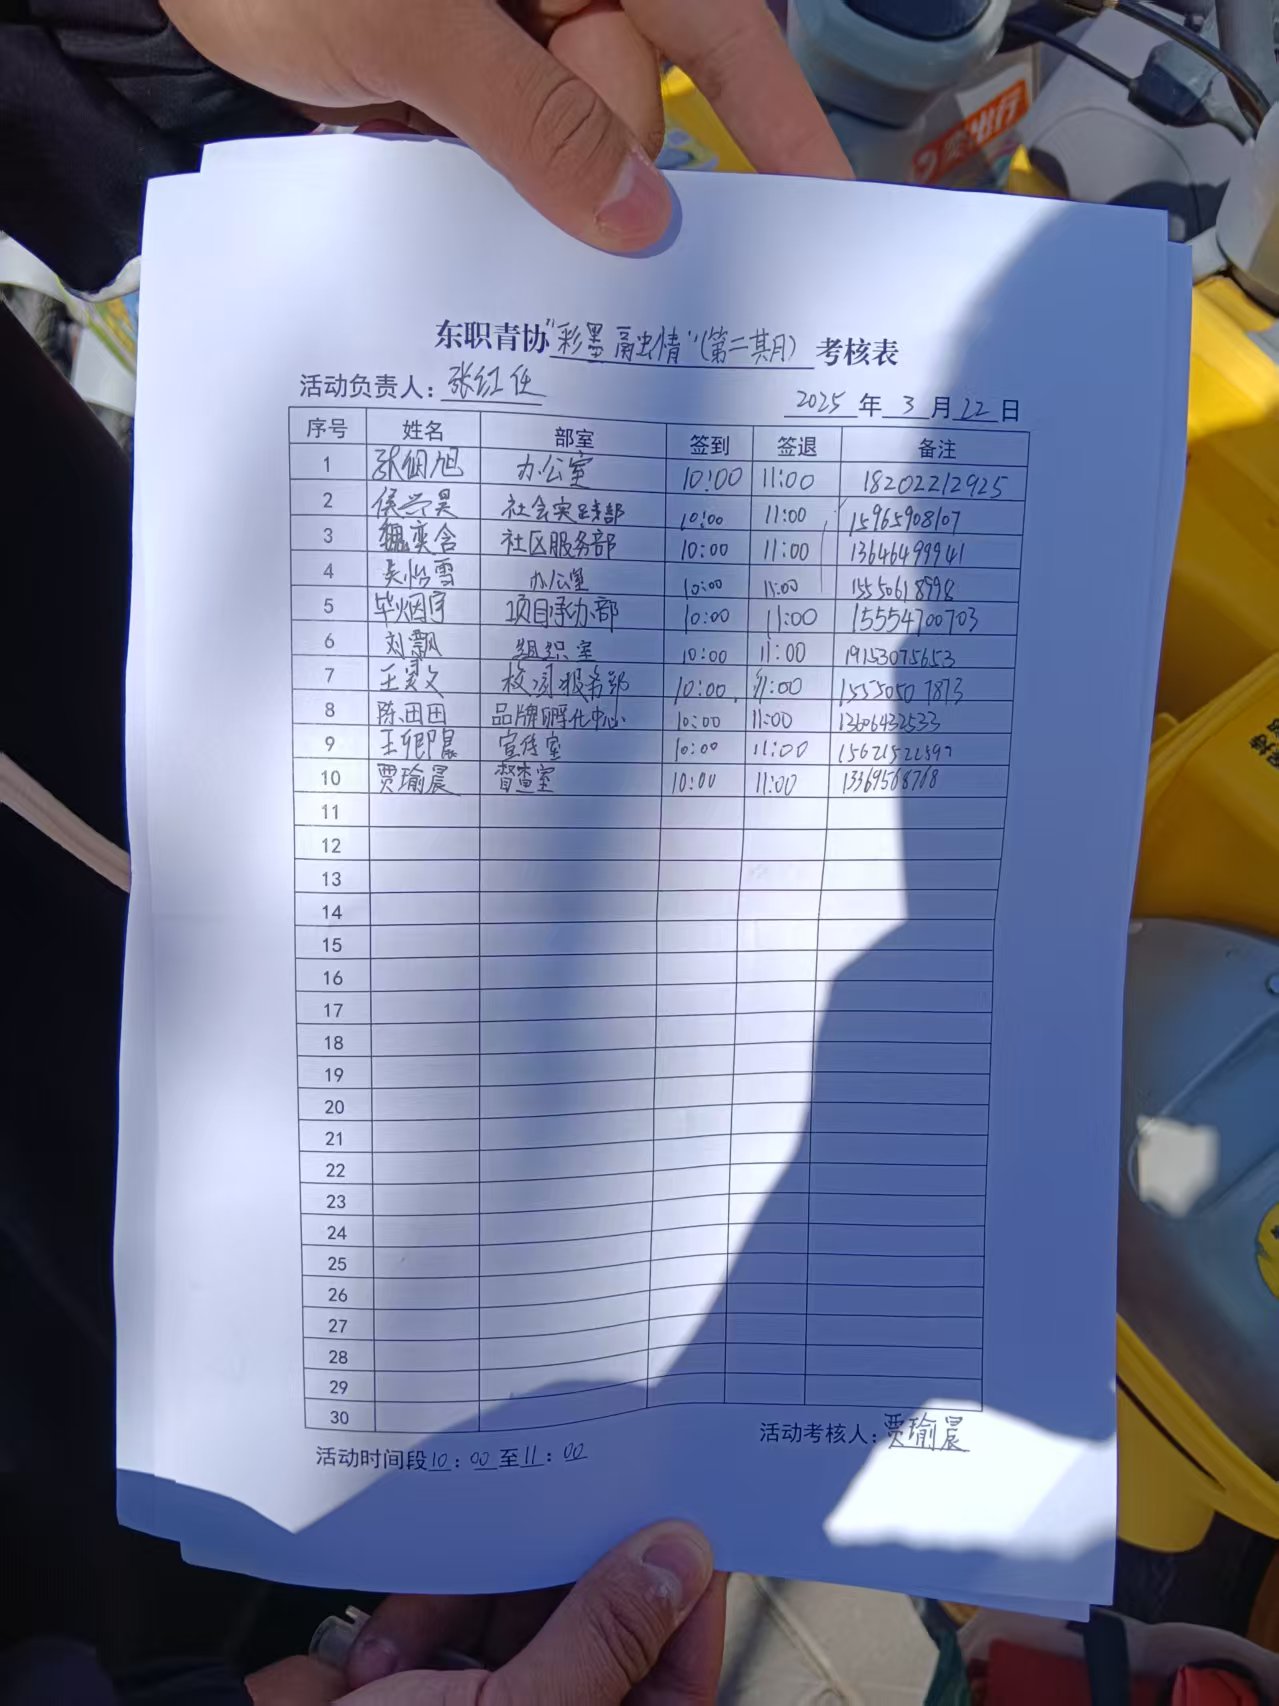 出行
东职青协"彩墨融情"(第二期)考核表
活动负责人：张红任
2025年3月22日
序号 姓名 部室 签到 签退 备注
1 张钢旭 办公室 10:00 11:00 18202212925
2 侯兴昊 社会实践部 10:00 11:00 15965908107
3 魏奕含 社区服务部 10:00 11:00 13646499941
4 吴怡雪 办公室 10:00 11:00 15550618998
5 毕烟宇 项目承办部 10:00 11:00 15554700703
6 刘飘 组织室 10:00 11:00 19153075653
7 王 文 校园服务部 10:00 11:00 15550507873
8 陈田田 品牌孵化中心 10:00 11:00 13606432533
9 王卿晨 宣传室 10:00 11:00
10 贾瑜晨 督查室 10:00 11:00 13369568768
11
12
13
14
15
16
17
18
19
20
21
22
23
24
25
26
27
28
29
30
活动考核人：贾瑜晨
活动时间段10：00至11：00